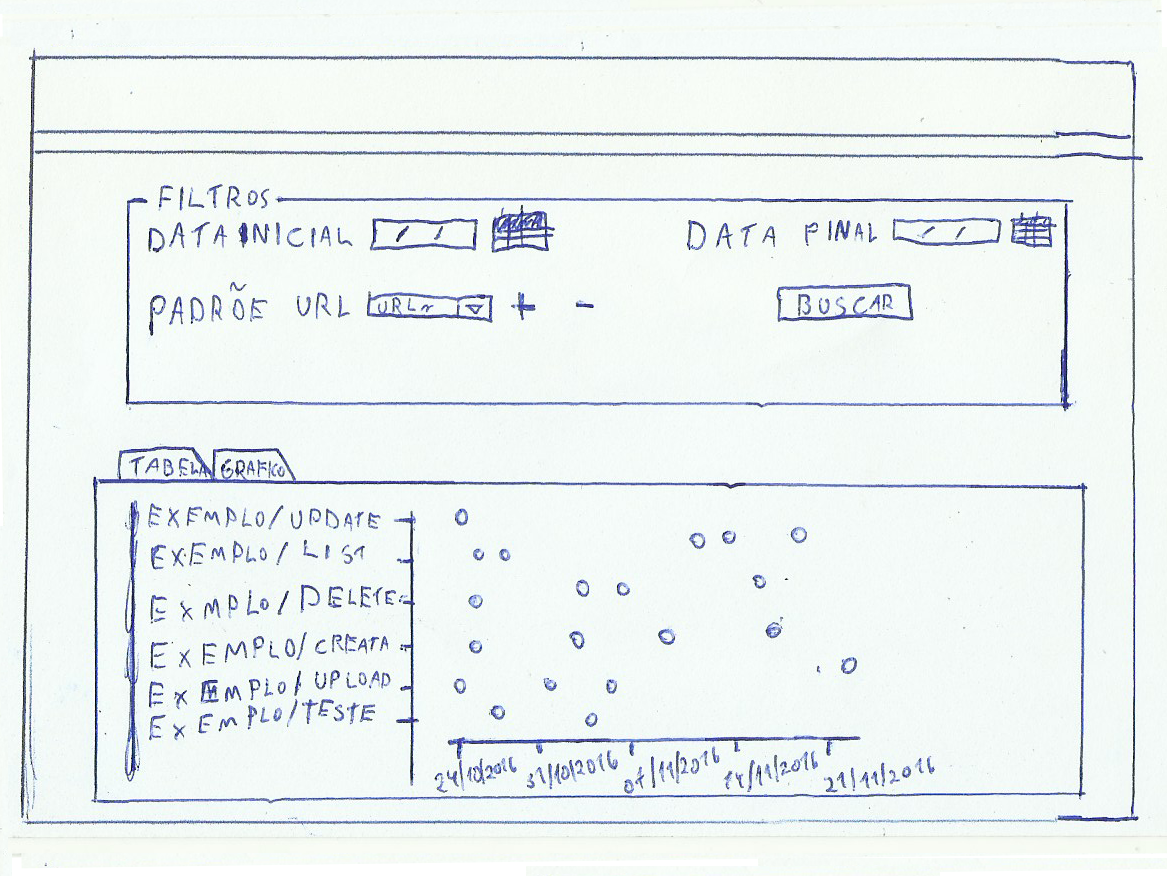 FILTROS
DATA INICIAL / / DATA FINAL / /
PADRÕE URL URL + - BUSCAR
TABELA GRAFICO
EXEMPLO/UPDATE
EXEMPLO/LIST
EXMPLO/DELETE
EXEMPLO/CREATA
EXEMPLO/UPLOAD
EXEMPLO/TESTE
24/10/2016 31/10/2016 07/11/2016 14/11/2016 21/11/2016